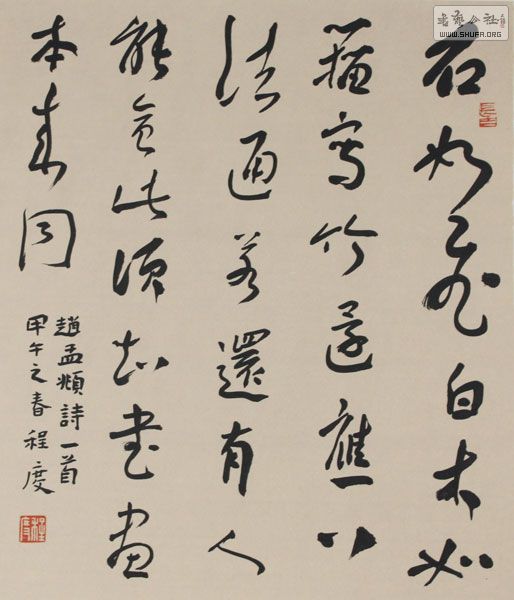 書藝公社
WWW.SHUFA.ORG
石如飛白木如
籀寫竹還應八
法通若還有人
能會此須知書畫
本來同
趙孟頫詩一首
甲午之春程度